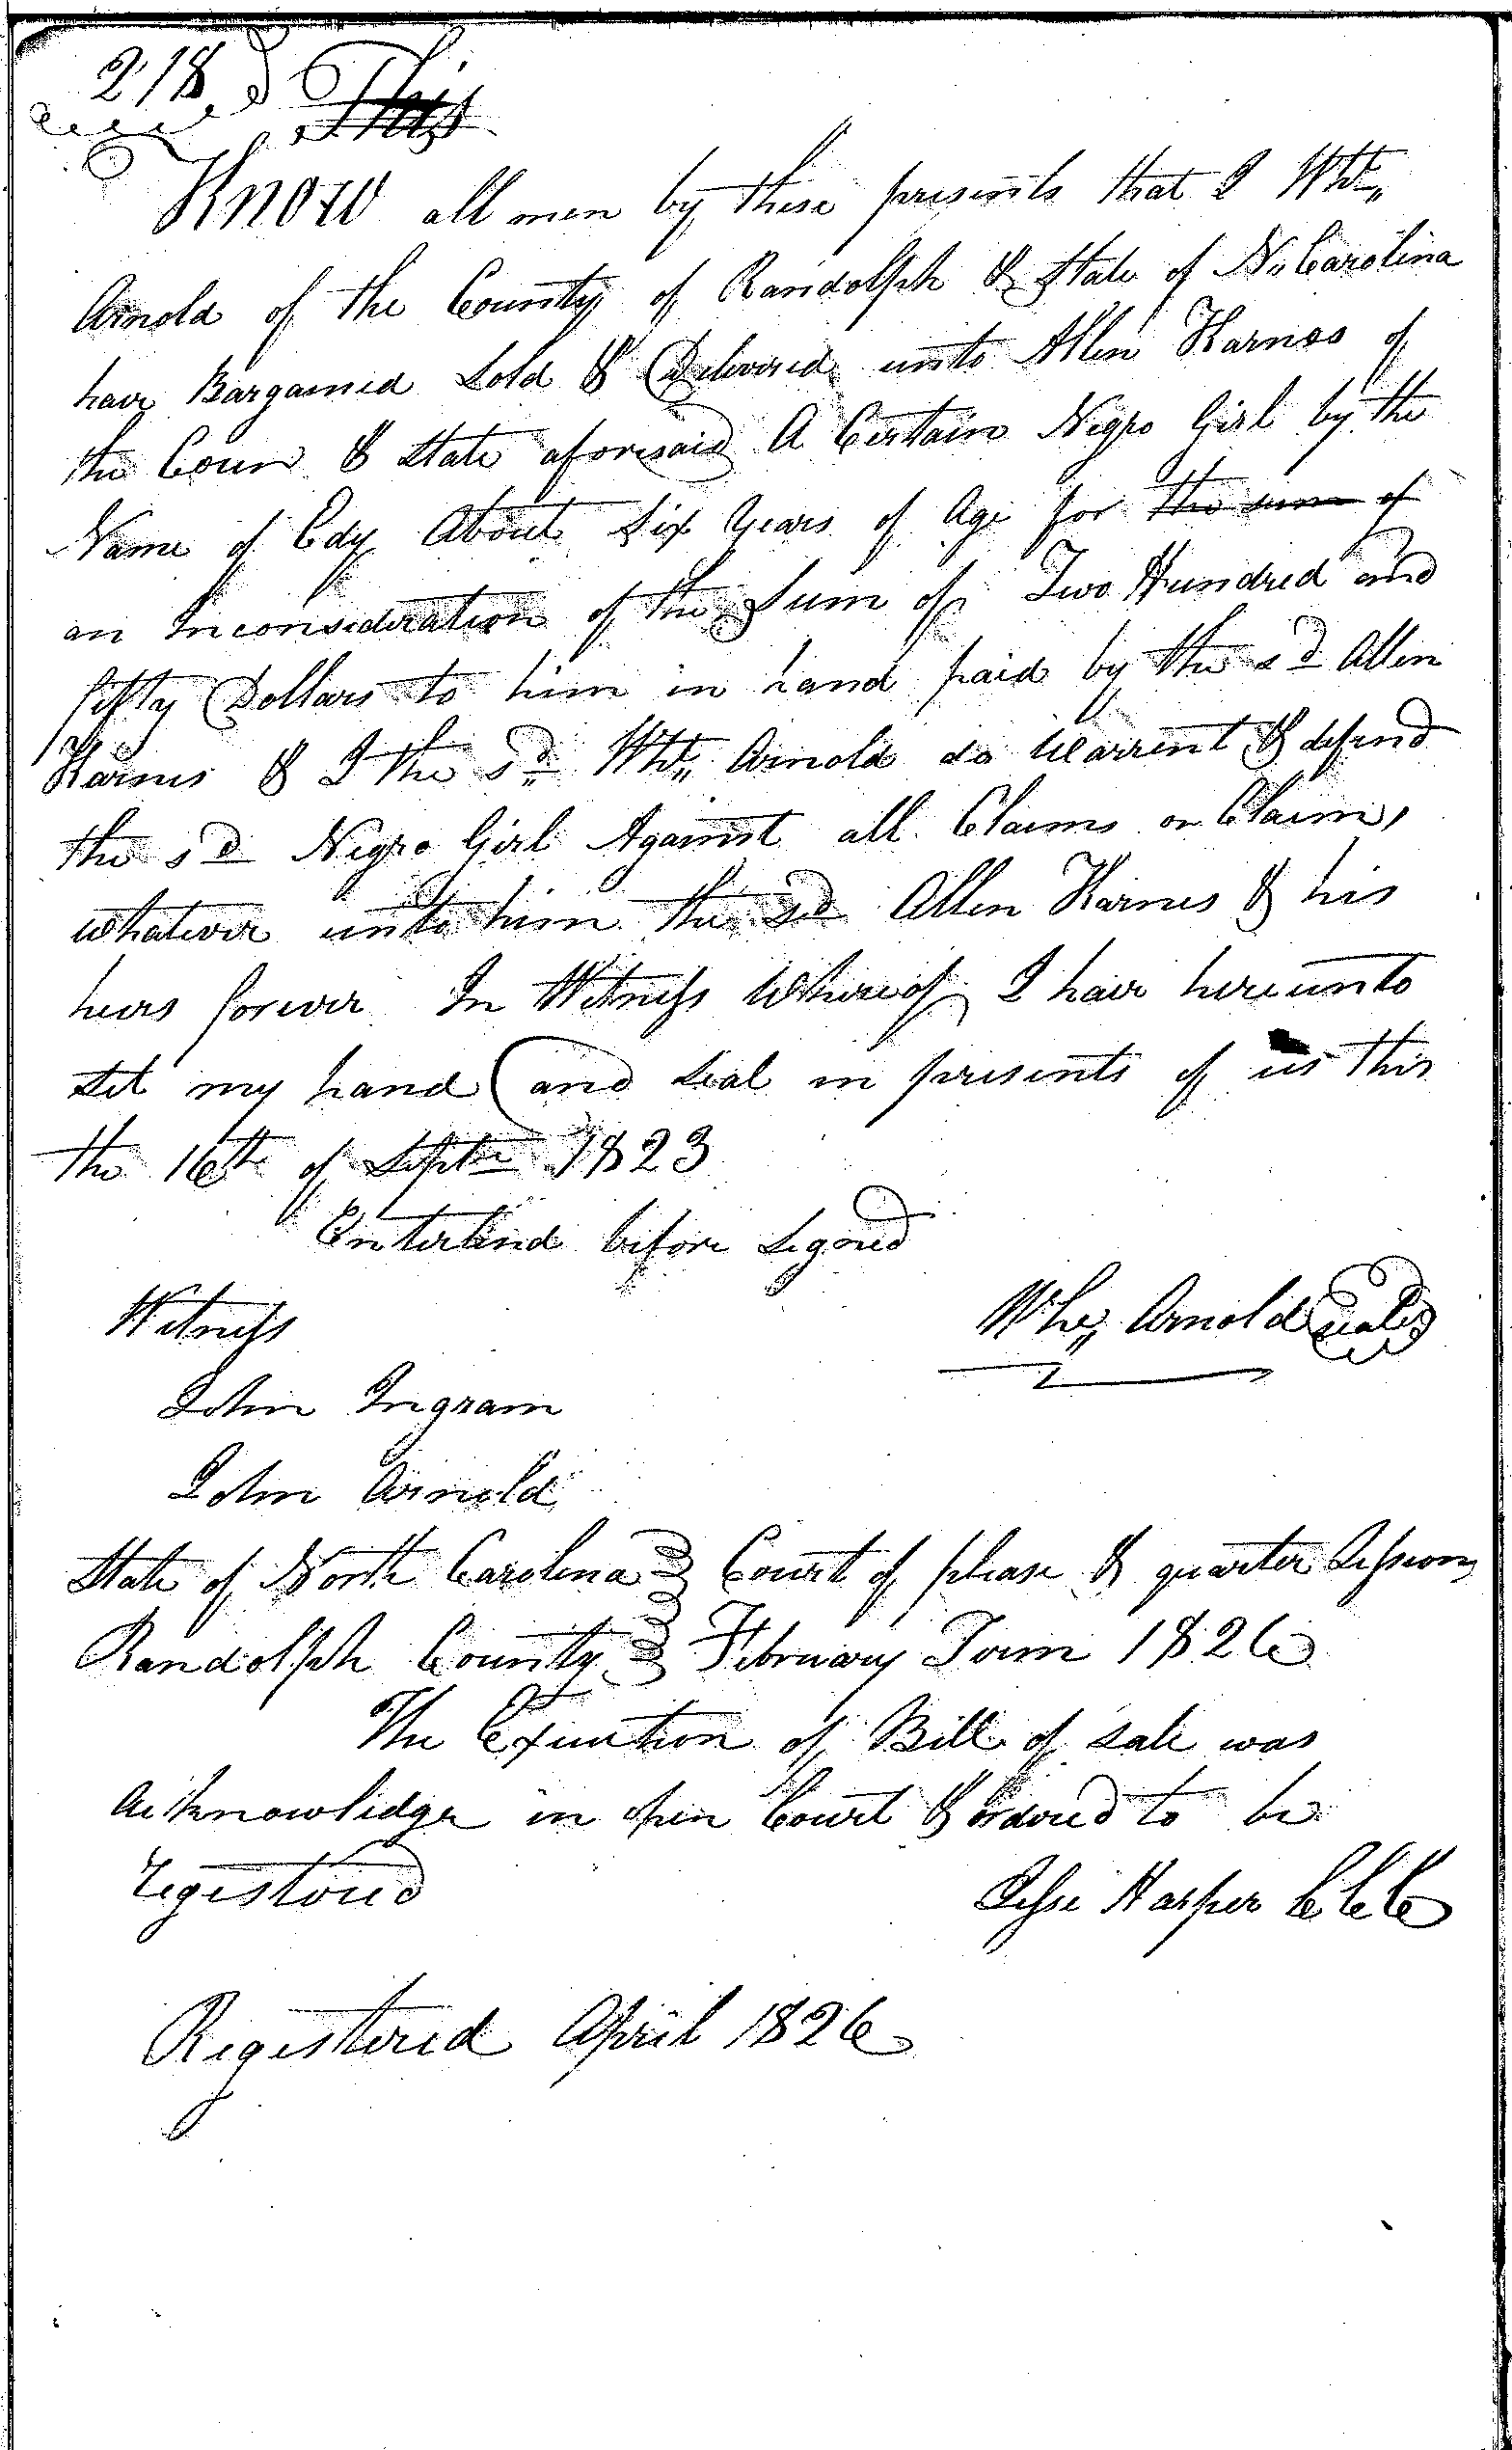 218
This
Know all men by these presents that I Wht,,
Arnold of the County of Randolph & State of N,, Carolina
have Bargained Sold & Delivered unto Allen Karnes of
the Coun & State aforesaid A Certain Negro Girl by the
Name of Edy About Six Years of Age for the sum of
an Inconsideration of the Sum of Two Hundred and
fifty Dollars to him in hand paid by the sd Allen
Karnes & I the sd Wht,, Arnold do Warrent & defend
the sd Negro Girl Against all Claims or Claim,
whatever unto him the sd Allen Karnes & his
heirs forever In Witness Whereof I have hereunto
Set my hand and Seal in presents of us this
the 16th of Septr 1823
Enterlind before Signed
Witness
Whe,, Arnold Seal
John Ingram
John Arnold
State of North Carolina Court of please & quarter Sessions
Randolph County February Term 1826
The Execution of Bill of Sale was
Acknowledge in open Court & ordored to be
registored
Jesse Harper CCC
Registered April 1826